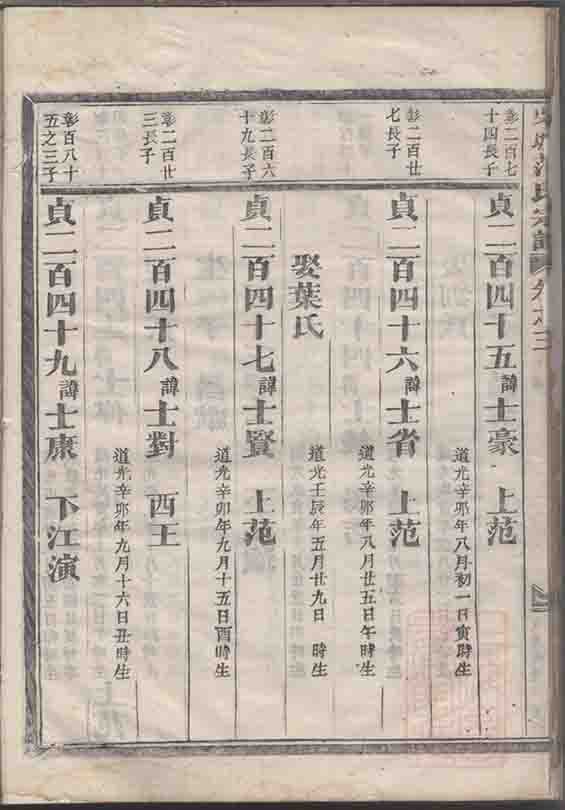 范氏宗譜
卷之三
彰二百七
十四長子
貞二百四十五諱士豪 上范
道光辛卯年八月初一日寅時生
彰二百廿
七長子
貞二百四十六諱士省 上范
道光辛卯年八月廿五日午時生
娶葉氏
道光壬辰年五月廿九日 時生
彰二百六
十九長子
貞二百四十七諱士賢 上范
道光辛卯年九月十五日酉時生
彰二百廿
三長子
貞二百四十八諱士對 西王
道光辛卯年九月十六日丑時生
彰百八十
五之三子
貞二百四十九諱士康 下江演